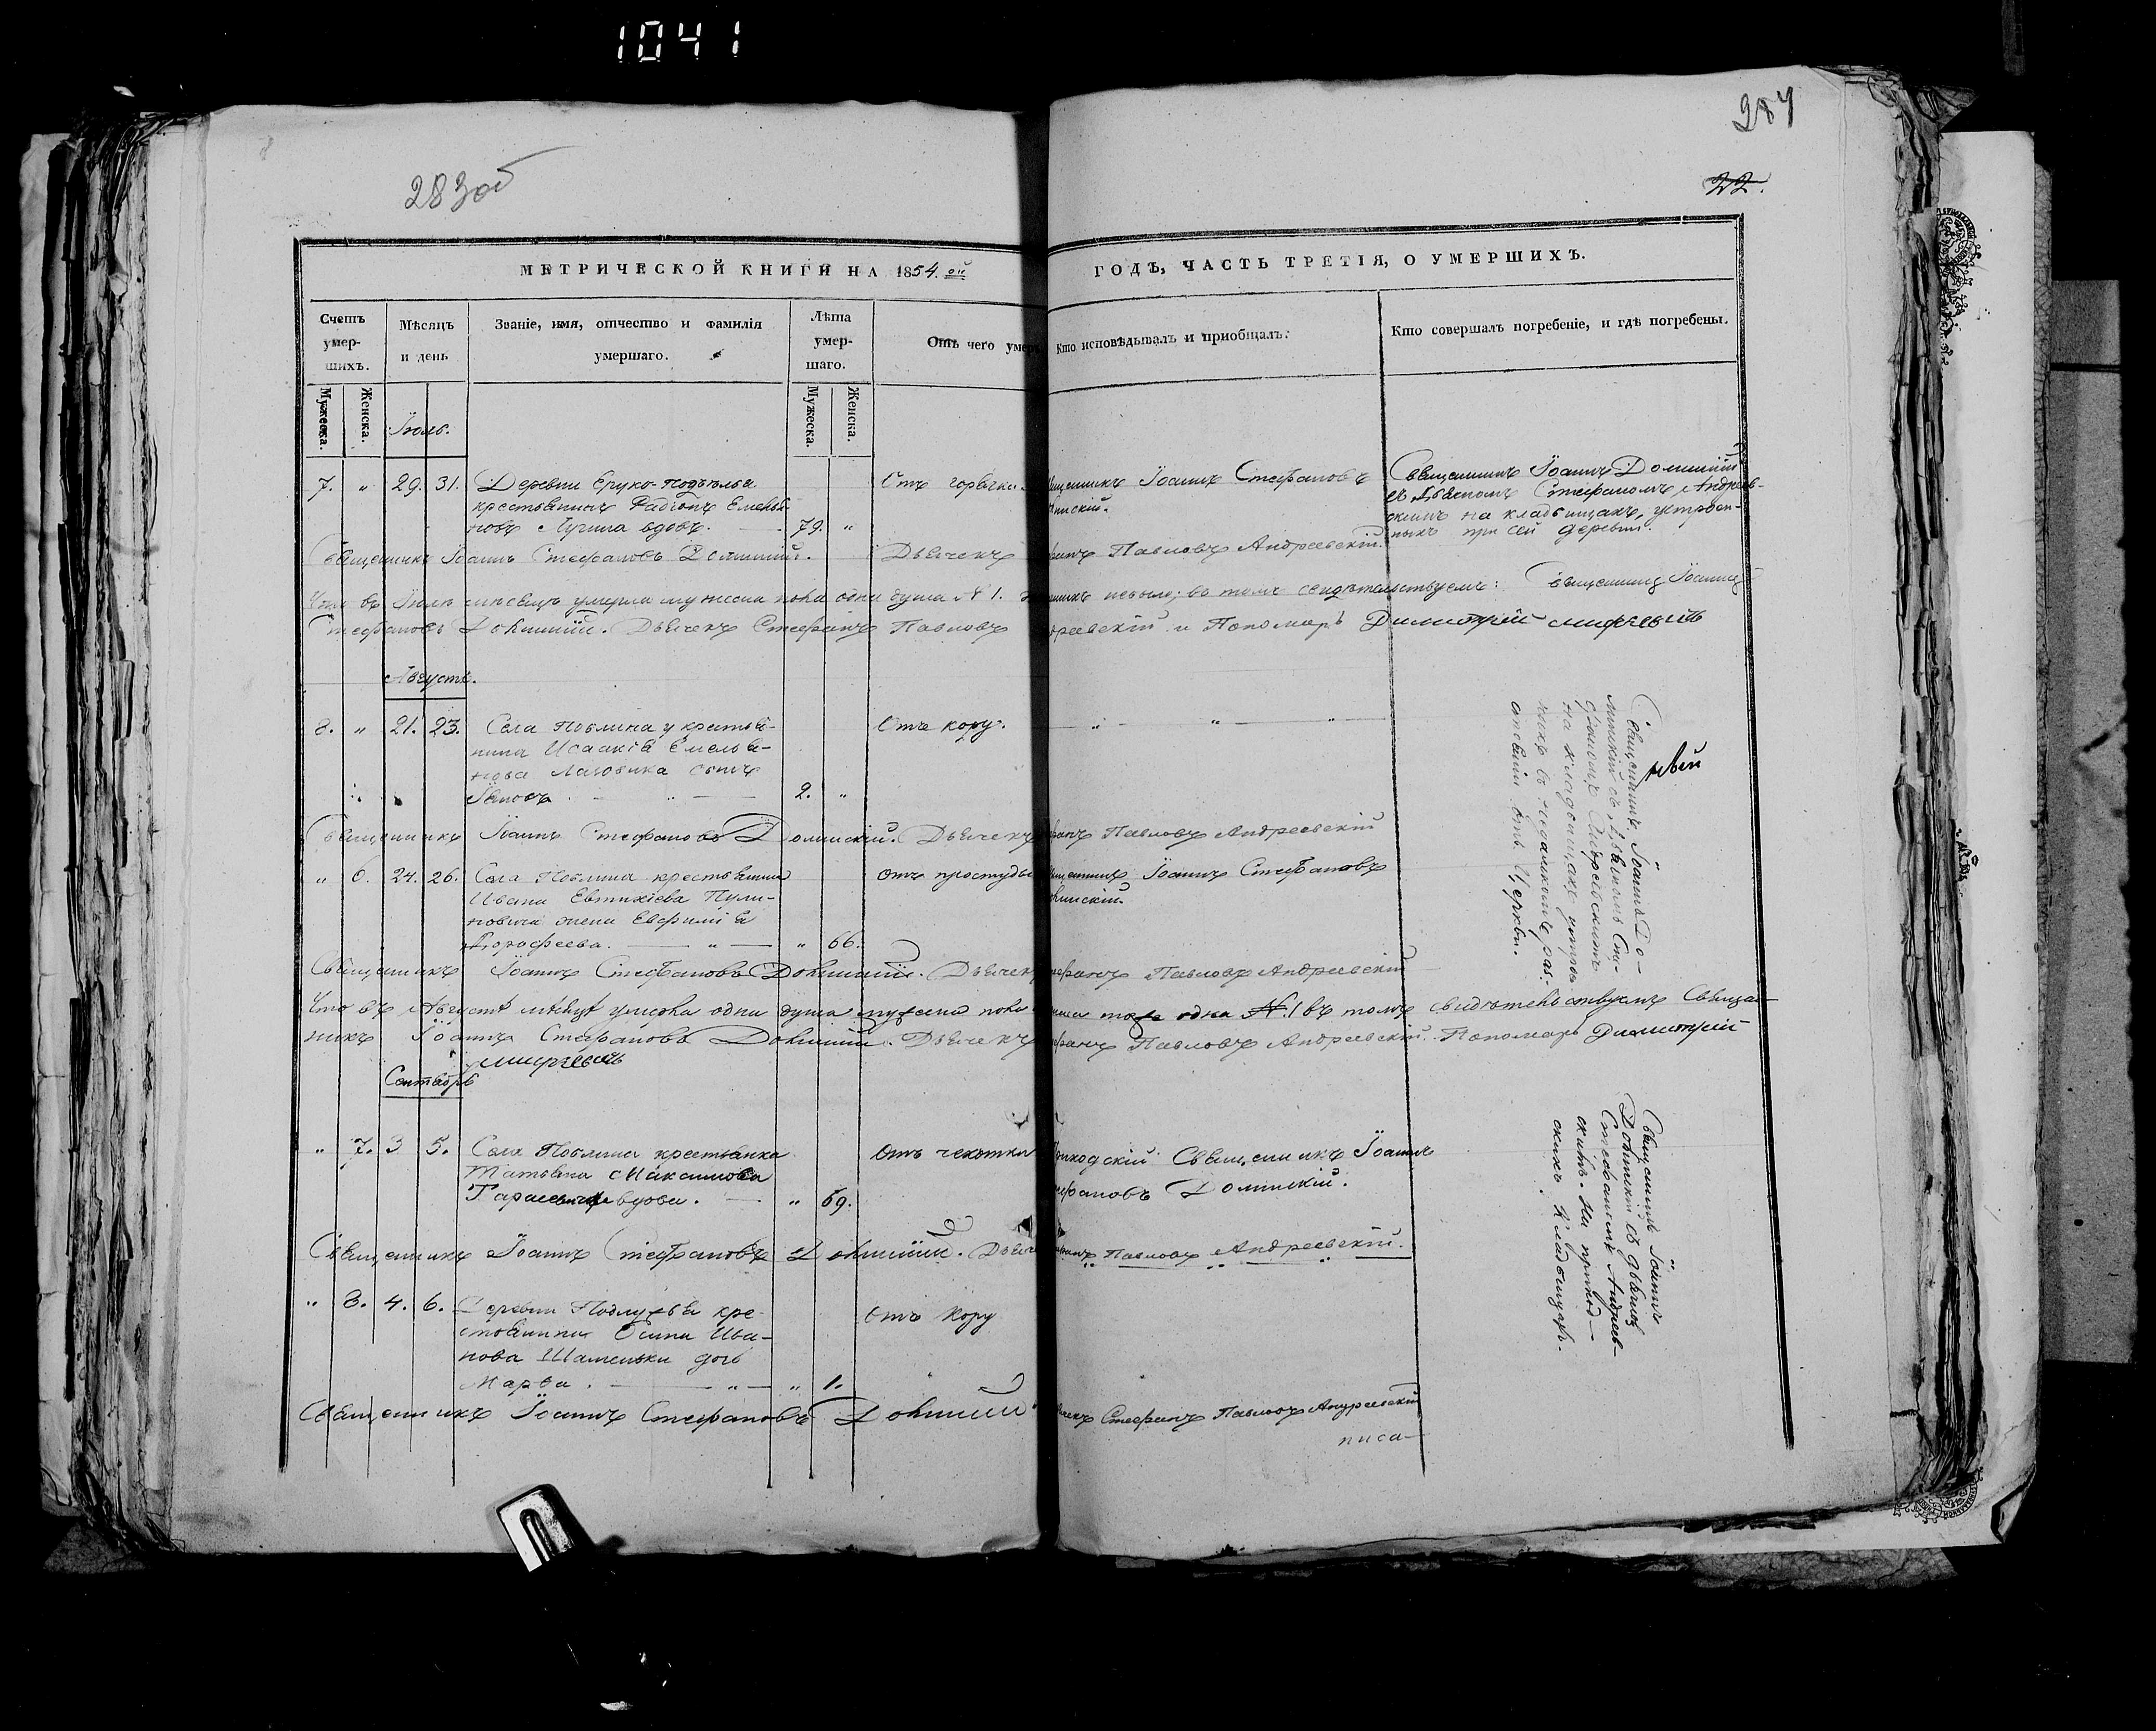 1041
283об
284
22.
МЕТРИЧЕСКОЙ КНИГИ НА 1854.ой ГОДЪ, ЧАСТЬ ТРЕТІЯ, О УМЕРШИХЪ.
Счетъ умер-шихъ.
Мѣсяцъ и день
Званіе, имя, отчество и фамилія умершаго.
Лѣта умер-шаго.
Отъ чего умер
Кто исповѣдывалъ и пріобщалъ:
Кто совершалъ погребеніе, и гдѣ погребены.
Мужеска.
Женска.
Іюль.
Мужеска.
Женска.
7. „ 29. 31. Деревни Еруко-
крестьянинъ Радіонъ Емелья-
новъ Лучина вдовъ. 79. „
Отъ горячки.
щенникъ Іоаннъ Стефановъ
инскій.
Священникъ Іоаннъ Долинскій
съ Дьячкомъ Стефаномъ Андреев-
скимъ на кладбищахъ, устроен-
ныхъ при сей деревни.
Священникъ Іоаннъ Стефановъ Долинскій. Дьячекъ фанъ Павловъ Андреевскій.
Что въ Іюлѣ мѣсяцѣ умерла мужеска пола одна душа № 1. не было; въ томъ свидѣтельствуемъ: Священникъ Іоаннъ
Стефановъ Долинскій. Дьячекъ Стефанъ Павловъ дреевскій и Пономарь Димитрій
Августъ.
8. „ 21. 23. Села крестья-
нина Исаакія Емелья-
нова сынъ
2. „
Отъ кору.
„ „ „
Священникъ Іоаннъ До-
линскій съ Дьячкомъ Сте-
фаномъ Андреевскимъ
на кладбищахъ устроен
ныхъ въ недалекомъ раз-
стояніи отъ Церкви.
Священникъ Іоаннъ Стефановъ Долинскій. Дьячекъ фанъ Павловъ Андреевскій
„ 6. 24. 26. Села крестьянина
Ивана Евтихіева Пули-
новича жена Евфимія
Дорофеева. „ „ 66.
отъ простуды
щенникъ Іоаннъ Стефановъ
линскій.
Священникъ Іоаннъ Стефановъ Долинскій. Дьячекъ ефанъ Павловъ Андреевскій
Что въ Августѣ мѣсяцѣ умерла одна душа мужеска пола тоже одна № 1 въ томъ свидѣтельствуемъ Священ-
никъ Іоаннъ Стефановъ Долинскій. Дьячекъ фанъ Павловъ Андреевскій. Пономарь Димитрій
Сентябрь
„ 7. 3 5. Села крестьянка
Татьяна Максимова
вдова. „ 69.
отъ чехотки
иходскій Священникъ Іоаннъ
ефановъ Долинскій.
Священникъ Іоаннъ
Долинскій съ дьячкомъ
Стефаномъ Андреев-
скимъ. На приход-
скихъ кладбищахъ.
Священникъ Іоаннъ Стефановъ Долинскій. Дьяч фанъ Павловъ Андреевскій.
„ 8. 4. 6. Деревни кре-
стьянина Осипа Ива-
нова дочь
Марѳа. „ „ 1.
отъ кору
Священникъ Іоаннъ Стефановъ Долинскій чекъ Стефанъ Павловъ Андреевскій
писа-